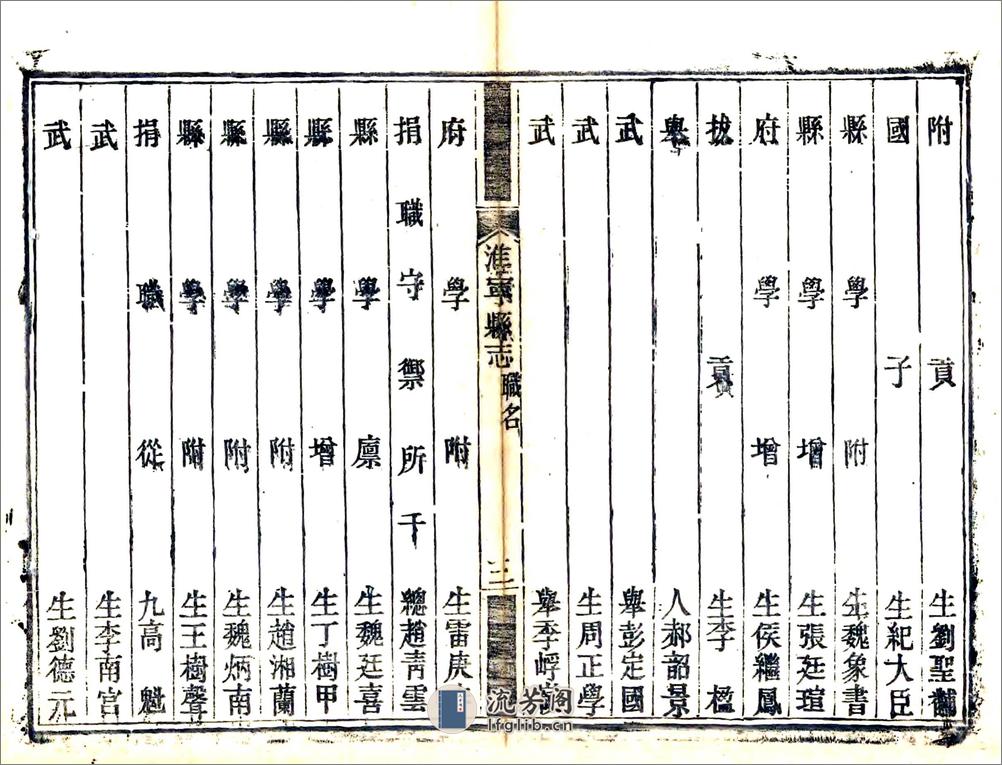 附貢生劉聖黼
國子生紀大臣
縣學附生魏象書
縣學增生張廷瑄
府學增生侯繼鳳
拔貢生李楹
舉人郝韶景
武舉彭定國
武生周正學
武舉季崢
淮寧縣志
職名
三
府學附生雷庚
捐職守禦所千總趙青雲
縣學廪生魏廷喜
縣學增生丁樹甲
縣學附生趙湘蘭
縣學附生魏炳南
縣學附生王樹聲
捐職從九高魁
武生李南宮
武生劉德元
流芳閣
lfglib.cn